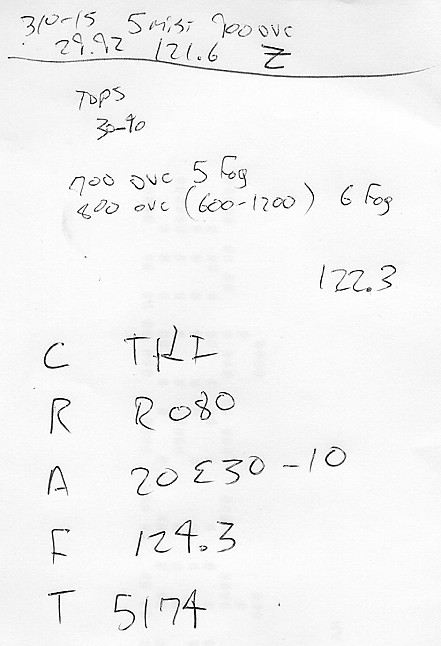 310-15 5 Mist 900 OVC
29.92 121.6 Z
TOPS
30-40
700 OVC 5 Fog
800 OVC (600-1200) 6 Fog
122.3
C TKI
R R080
A 20 E 30 -10
F 124.3
T 5174